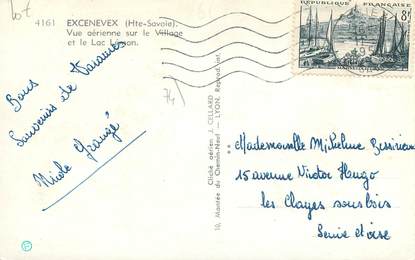 lot
4161 EXCENEVEX (Hte-Savoie).
Vue aérienne sur le Village
et le Lac Léman.
74
Bons
Souvenirs de Vacances
Nicole
Cliché aérien J. CELLARD
10, Montée du Chemin-Neuf — LYON. Reprod. int.
REPUBLIQUE FRANÇAISE
8F
Mademoiselle Micheline
15 avenue Victor Hugo
les Clayes sous bois
Seine et Oise